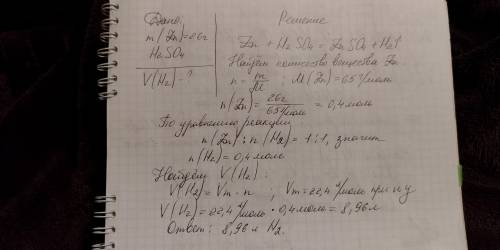 Дано:
m(Zn)=26г
H2SO4
V(H2)-?
Решение
Zn + H2SO4 = ZnSO4 + H2↑
Найдём количество вещества Zn
n = m/M ; M(Zn)=65 г/моль
n(Zn)= 26г/65г/моль = 0,4 моль
По уравнению реакции
n(Zn) : n(H2) = 1:1, значит
n(H2)=0,4 моль
Найдём V(H2):
V(H2)=Vm·n ; Vm=22,4 л/моль при н.у
V(H2)=22,4 л/моль · 0,4 моль = 8,96 л
Ответ: 8,96 л H2.